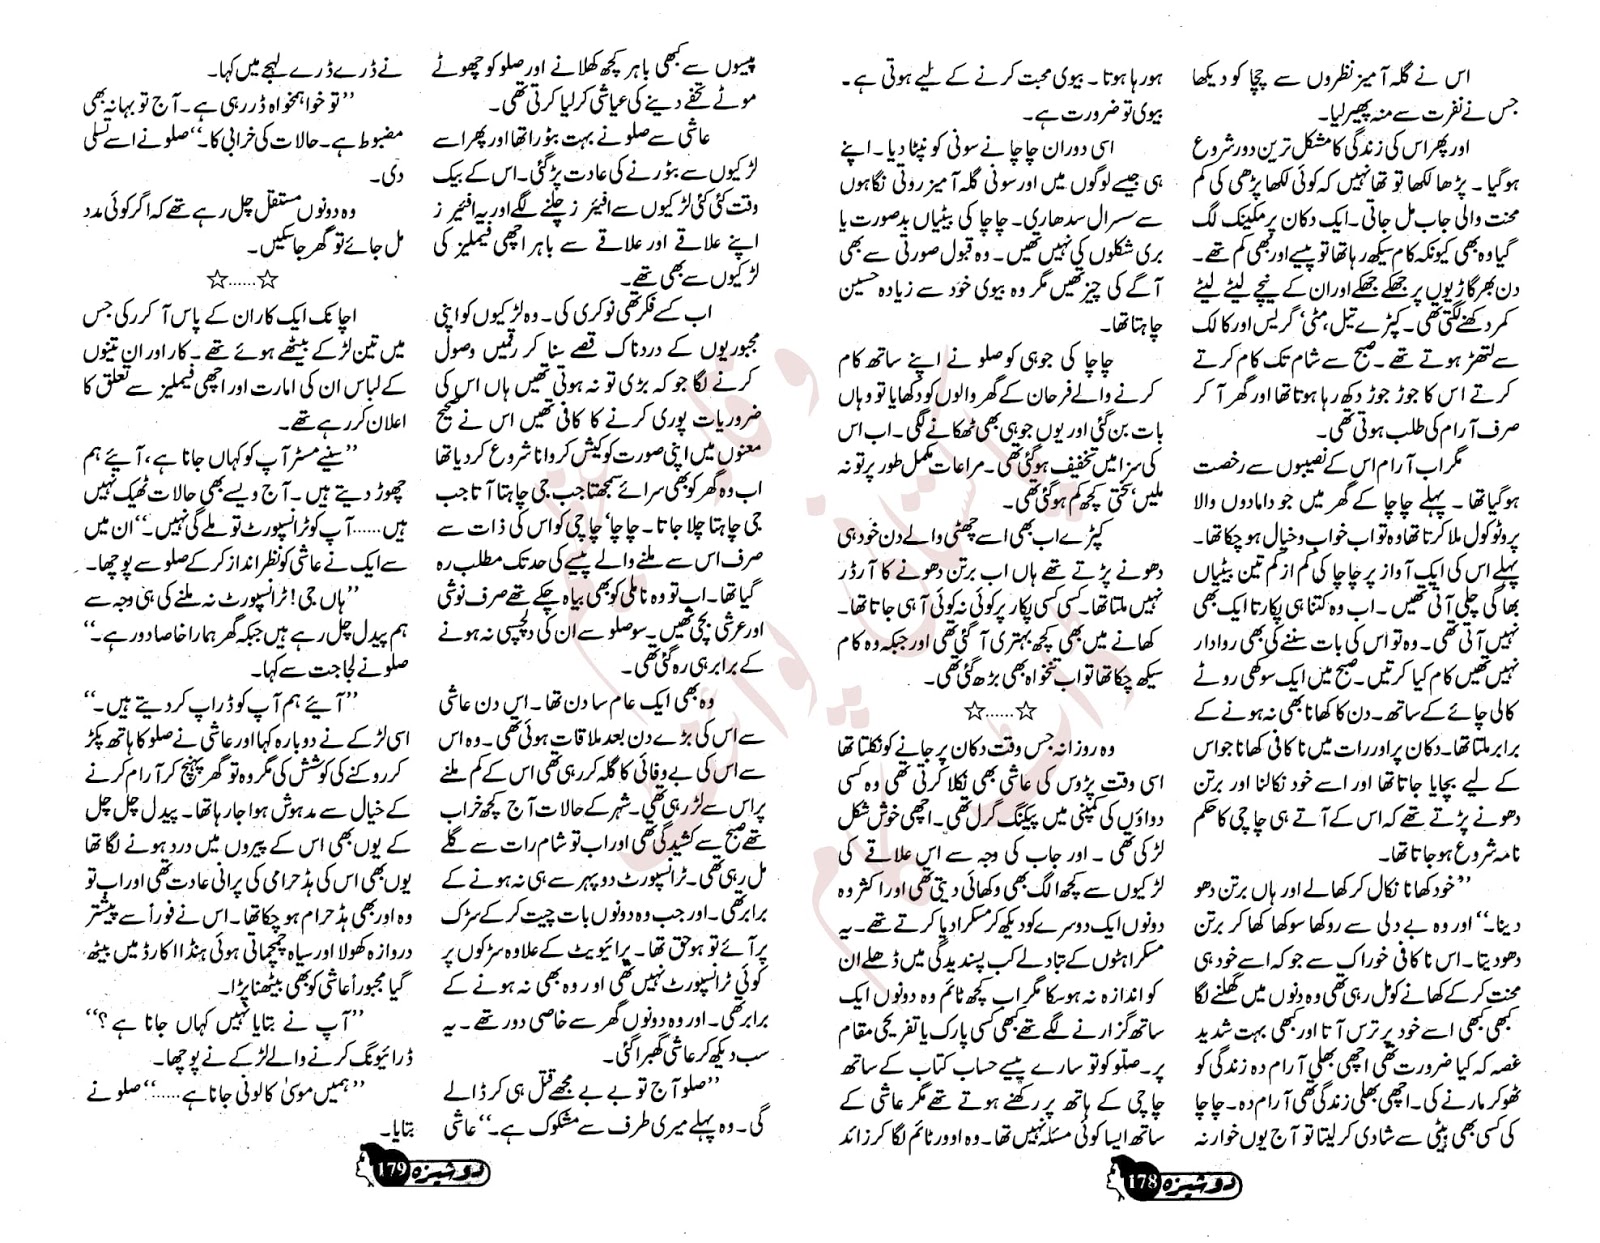 اس نے گلہ آمیز نظروں سے چچا کو دیکھا
جس نے نفرت سے منہ پھیر لیا۔
اور پھر اس کی زندگی کا مشکل ترین دور شروع
ہوگیا۔ پڑھا لکھا تو تھا نہیں کہ کوئی لکھا پڑھی کی کم
محنت والی جاب مل جاتی۔ ایک دکان پر مکینک لگ
گیا وہ بھی کیونکہ کام سیکھ رہا تھا تو پیسے اور بھی کم تھے۔
دن بھر گاڑیوں پر جھکے جھکے اور ان کے نیچے لیٹے لیٹے
کمر دکھنے لگتی تھی۔ کپڑے تیل، مٹی' گریس اور کالک
سے لتھڑ ہوتے تھے۔ صبح سے شام تک کام کرتے
کرتے اس کا جوڑ جوڑ دکھ رہا ہوتا تھا اور گھر آ کر
صرف آرام کی طلب ہوتی تھی۔
مگر اب آرام اس کے نصیبوں سے رخصت
ہوگیا تھا۔ پہلے چاچا کے گھر میں جو دامادوں والا
پروٹوکول ملا کرتا تھا وہ تو اب خواب و خیال ہو چکا تھا۔
پہلے اس کی ایک آواز پر چاچا کی کم از کم تین بیٹیاں
بھاگی چلی آتی تھیں۔ اب وہ کتنا ہی پکارتا ایک بھی
نہیں آتی تھی۔ وہ تو اس کی بات سننے کی بھی روادار
نہیں تھیں کام کیا کرتیں۔ صبح میں ایک سوکھی روٹی
کالی چائے کے ساتھ۔ دن کا کھانا بھی نہ ہونے کے
برابر ملتا تھا۔ دکان پر اور رات میں ناکافی کھانا جو اس
کے لیے بچایا جاتا تھا اور اسے خود نکالنا اور برتن
دھونے پڑتے تھے کہ اس کے آتے ہی چاچی کا حکم
نامہ شروع ہو جاتا تھا۔
''خود کھانا نکال کر کھا لے اور ہاں برتن دھو
دینا۔'' اور وہ بے دلی سے روکھا سوکھا کھا کر برتن
دھو دیتا۔ اس ناکافی خوراک سے جو کہ اسے خود ہی
محنت کر کے کھانے کو مل رہی تھی وہ دنوں میں گھلنے لگا
کبھی کبھی اسے خود پر ترس آتا اور کبھی بہت شدید
غصہ کہ کیا ضرورت تھی اچھی بھلی آرام دہ زندگی کو
ٹھوکر مارنے کی۔ اچھی بھلی زندگی تھی آرام دہ۔ چاچا
کی کسی بھی بیٹی سے شادی کر لیتا تو آج یوں خوار نہ
ہو رہا ہوتا۔ بیوی محبت کرنے کے لیے ہوتی ہے۔
بیوی تو ضرورت ہے۔
اسی دوران چاچا نے سونی کو نپٹا دیا۔ اپنے
ہی جیسے لوگوں میں اور سونی گلہ آمیز روتی نگاہوں
سے سسرال سدھاری۔ چاچا کی بیٹیاں بدصورت یا
بری شکلوں کی نہیں تھیں۔ وہ قبول صورتی سے بھی
آگے کی چیز تھیں مگر وہ بیوی خود سے زیادہ حسین
چاہتا تھا۔
چاچا کی جوہی کو صلو نے اپنے ساتھ کام
کرنے والے فرحان کے گھر والوں کو دکھایا تو وہاں
بات بن گئی اور یوں جوہی بھی ٹھکانے لگی۔ اب اس
کی سزا میں تخفیف ہوگئی تھی۔ مراعات مکمل طور پر تو نہ
ملیں' سختی کچھ کم ہوگئی تھی۔
کپڑے اب بھی اسے چھٹی والے دن خود ہی
دھونے پڑتے تھے ہاں اب برتن دھونے کا آرڈر
نہیں ملتا تھا۔ کسی کسی پکار پر کوئی نہ کوئی آ ہی جاتا تھا۔
کھانے میں بھی کچھ بہتری آ گئی تھی اور جبکہ وہ کام
سیکھ چکا تھا تو اب تنخواہ بھی بڑھ گئی تھی۔
☆......☆
وہ روزانہ جس وقت دکان پر جانے کو نکلتا تھا
اسی وقت پڑوس کی عاشی بھی نکلا کرتی تھی وہ کسی
دواؤں کی کمپنی میں پیکنگ گرل تھی۔ اچھی خوش شکل
لڑکی تھی۔ اور جاب کی وجہ سے اس علاقے کی
لڑکیوں سے کچھ الگ بھی دکھائی دیتی تھی اور اکثر وہ
دونوں ایک دوسرے کو دیکھ کر مسکرا دیا کرتے تھے۔ یہ
مسکراہٹوں کے تبادلے کب پسندیدگی میں ڈھلے ان
کو اندازہ نہ ہو سکا مگر اب کچھ ٹائم وہ دونوں ایک
ساتھ گزارنے لگے تھے بھی کسی پارک یا تفریحی مقام
پر۔ صلو کو تو سارے پیسے حساب کتاب کے ساتھ
چاچی کے ہاتھ پر رکھنے ہوتے تھے مگر عاشی کے
ساتھ ایسا کوئی مسئلہ نہیں تھا۔ وہ اوور ٹائم لگا کر زائد
دوشیزہ 178
پیسوں سے کبھی باہر کچھ کھلانے اور صلو کو چھوٹے
موٹے تحفے دینے کی عیاشی کر لیا کرتی تھی۔
عاشی سے صلو نے بہت بٹورا تھا اور پھر اسے
لڑکیوں سے بٹورنے کی عادت پڑ گئی۔ اس کے بیک
وقت کئی کئی لڑکیوں سے افیئرز چلنے لگے اور یہ افیئرز
اپنے علاقے اور علاقے سے باہر اچھی فیملیز کی
لڑکیوں سے بھی تھے۔
اب کسے فکر تھی نوکری کی۔ وہ لڑکیوں کو اپنی
مجبوریوں کے دردناک قصے سنا کر رقمیں وصول
کرنے لگا جو کہ بڑی تو نہ ہوتی تھیں ہاں اس کی
ضروریات پوری کرنے کا کافی تھیں اس نے صحیح
معنوں میں اپنی صورت کو کیش کروانا شروع کر دیا تھا
اب وہ گھر کو بھی سرائے سمجھتا جب جی چاہتا آتا جب
جی چاہتا چلا جاتا۔ چاچا' چاچی کو اس کی ذات سے
صرف اس سے ملنے والے پیسے کی حد تک مطلب رہ
گیا تھا۔ اب تو وہ نائلی کو بھی بیاہ چکے تھے صرف نوشی
اور عرشی بچی تھیں۔ سو صلو سے ان کی دلچسپی نہ ہونے
کے برابر ہی رہ گئی تھی۔
وہ بھی ایک عام سا دن تھا۔ اس دن عاشی
سے اس کی بڑے دن بعد ملاقات ہوئی تھی۔ وہ اس
سے اس کی بے وفائی کا گلہ کر رہی تھی اس کے کم ملنے
پر اس سے لڑ رہی تھی۔ شہر کے حالات آج کچھ خراب
تھے صبح سے کشیدگی تھی اور اب تو شام رات سے گلے
مل رہی تھی۔ ٹرانسپورٹ دوپہر سے ہی نہ ہونے کے
برابر تھی۔ اور جب وہ دونوں بات چیت کر کے سڑک
پر آئے تو ہو حق تھا۔ پرائیویٹ کے علاوہ سڑکوں پر
کوئی ٹرانسپورٹ نہیں تھی اور وہ بھی نہ ہونے کے
برابر تھی۔ اور وہ دونوں گھر سے خاصی دور تھے۔ یہ
سب دیکھ کر عاشی گھبرا گئی۔
''صلو آج تو بے بے مجھے قتل ہی کر ڈالے
گی۔ وہ پہلے میری طرف سے مشکوک ہے۔'' عاشی
نے ڈرے ڈرے لہجے میں کہا۔
''تو خوامخواہ ڈر رہی ہے۔ آج تو بہانہ بھی
مضبوط ہے۔ حالات کی خرابی کا۔'' صلو نے اسے تسلی
دی۔
وہ دونوں مستقل چل رہے تھے کہ اگر کوئی مدد
مل جائے تو گھر جا سکیں۔
☆......☆
اچانک ایک کار ان کے پاس آ کر رکی جس
میں تین لڑکے بیٹھے ہوئے تھے۔ کار اور ان تینوں
کے لباس ان کی امارت اور اچھی فیملیز سے تعلق کا
اعلان کر رہے تھے۔
''سنیے مسٹر آپ کو کہاں جانا ہے، آیئے ہم
چھوڑ دیتے ہیں۔ آج ویسے بھی حالات ٹھیک نہیں
ہیں...... آپ کو ٹرانسپورٹ تو ملے گی نہیں۔'' ان میں
سے ایک نے عاشی کو نظر انداز کر کے صلو سے پوچھا۔
''ہاں جی! ٹرانسپورٹ نہ ملنے کی ہی وجہ سے
ہم پیدل چل رہے ہیں جبکہ گھر ہمارا خاصا دور ہے۔''
صلو نے لجاجت سے کہا۔
''آیئے ہم آپ کو ڈراپ کر دیتے ہیں۔''
اسی لڑکے نے دوبارہ کہا اور عاشی نے صلو کا ہاتھ پکڑ
کر روکنے کی کوشش کی مگر وہ تو گھر پہنچ کر آرام کرنے
کے خیال سے مدہوش ہوا جا رہا تھا۔ پیدل چل چل
کے یوں بھی اس کے پیروں میں درد ہونے لگا تھا
یوں بھی اس کی ہڈ حرامی کی پرانی عادت تھی اور اب تو
وہ اور بھی ہڈ حرام ہو چکا تھا۔ اس نے فوراً سے پیشتر
دروازہ کھولا اور سیاہ چمچماتی ہوئی ہنڈا اکارڈ میں بیٹھ
گیا مجبوراً عاشی کو بھی بیٹھنا پڑا۔
''آپ نے بتایا نہیں کہاں جانا ہے؟''
ڈرائیونگ کرنے والے لڑکے نے پوچھا۔
''ہمیں موسیٰ کالونی جانا ہے......'' صلو نے
بتایا۔
دوشیزہ 179